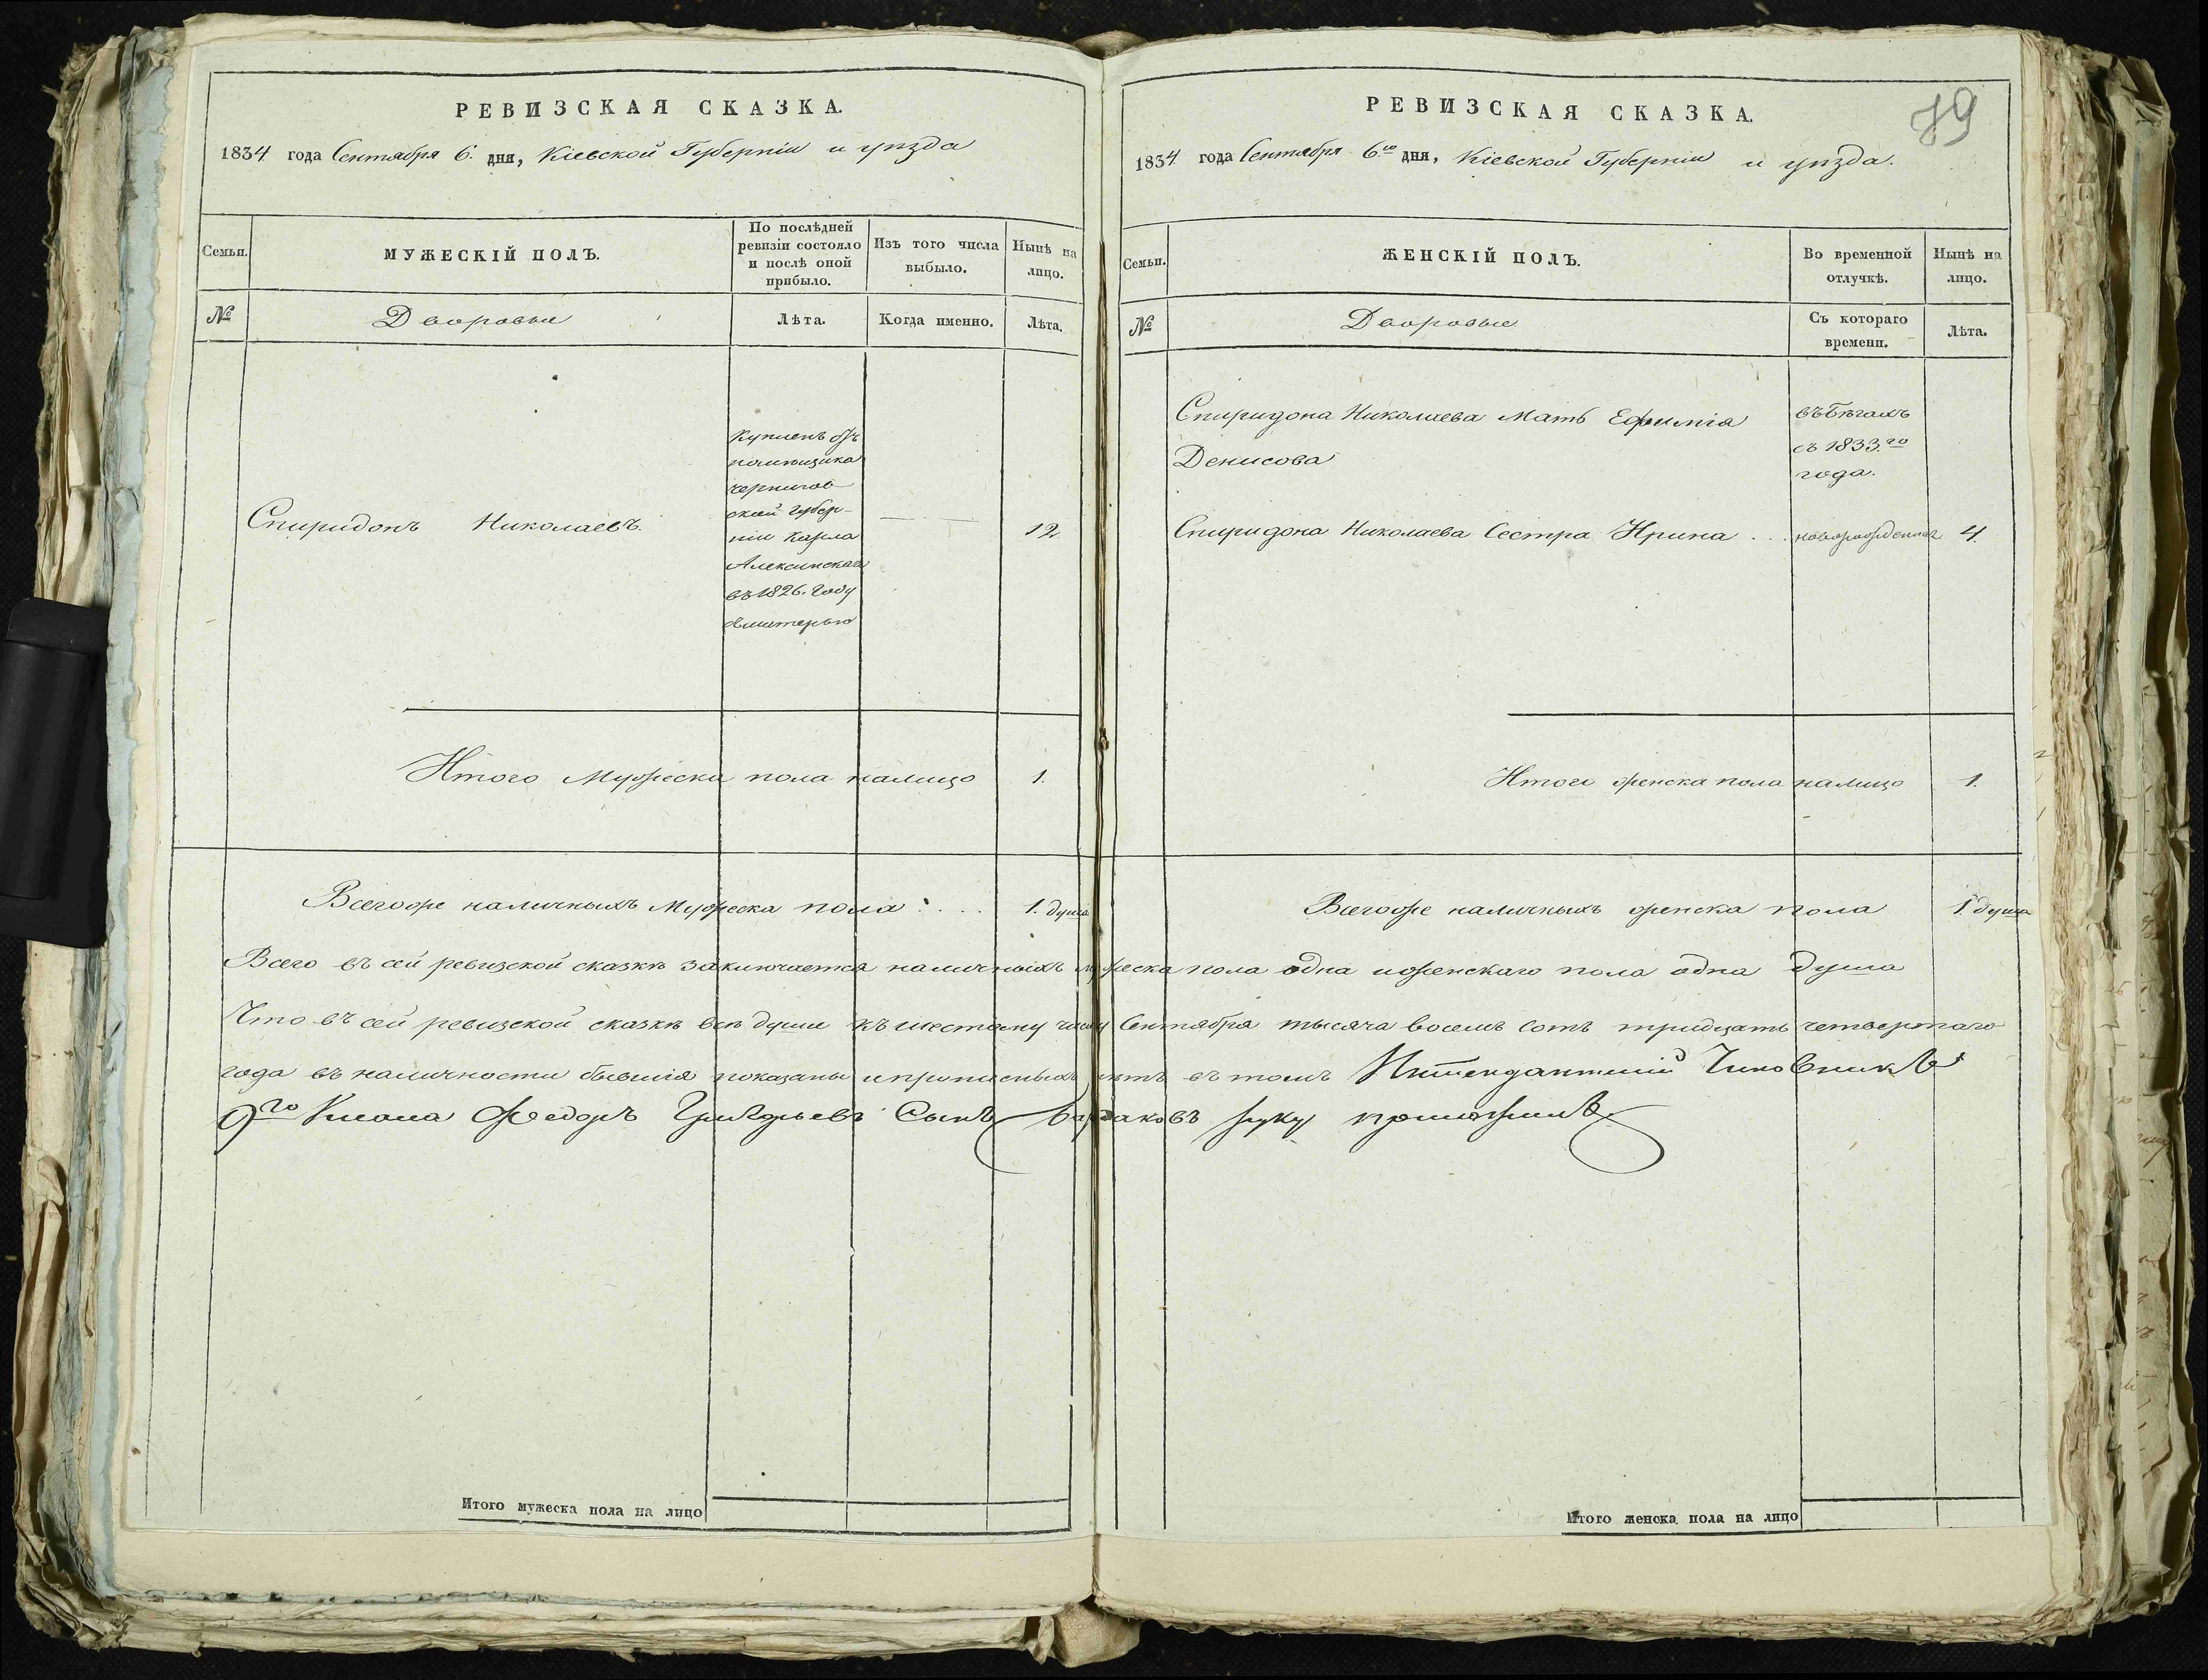 РЕВИЗСКАЯ СКАЗКА.
1834 года Сентября 6. дня, Кіевской Губерніи и уѣзда
Семьи.
МУЖЕСКІЙ ПОЛЪ.
По послѣдней
ревизіи состояло
и послѣ оной
прибыло.
Изъ того числа
выбыло.
Нынѣ на
лицо.
№
Дворовые
Лѣта.
Когда именно.
Лѣта.
Спиридонъ Николаевъ.
Купленъ отъ
помѣщика
чернигов
ской губер-
ніи Карла
въ 1826. году
12.
Итого Мужеска пола налицо 1.
Всегоже наличныхъ Мужеска пола . . . 1. душа
РЕВИЗСКАЯ СКАЗКА.
79
1834 года Сентября 6го дня, Кіевской Губерніи и уѣзда.
Семьи.
ЖЕНСКІЙ ПОЛЪ.
Во временной
отлучкѣ.
Нынѣ на
лицо.
№
Дворовые
Съ котораго
времени.
Лѣта.
Спиридона Николаева Мать Ефимія
Денисова
въ бѣгахъ
съ 1833го
года.
Спиридона Николаева Сестра Ирина . . . новорожденная 4.
Итого женска пола налицо 1.
Всегоже наличныхъ женска пола 1. душа
Всего въ сей ревизской сказкѣ заключается наличныхъ мужеска пола одна и женскаго пола одна душа
Что въ сей ревизской сказкѣ всѣ души къ шестому числу Сентября тысяча восемь сотъ тридцать четвертаго
года въ наличности бывшія показаны и прописныхъ нѣтъ въ томъ Чиновникъ
9го Класа Федоръ Сынъ руку приложилъ
Итого мужеска пола на лицо
Итого женска пола на лицо